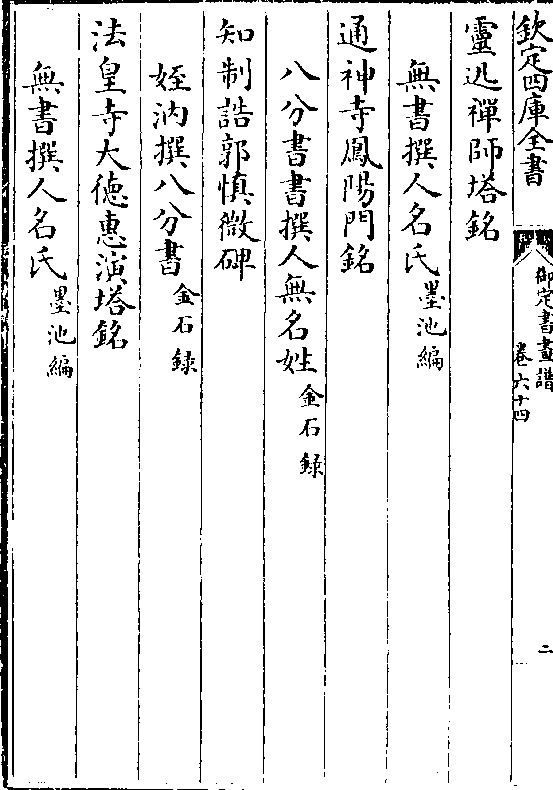 欽定四庫全書
御定書畫譜
卷六十四
二
靈迅禪師塔銘
無書撰人名氏墨池編
通神寺鳳陽門銘
八分書書撰人無名姓金石録
知制誥郭慎微碑
姪汭撰八分書金石録
法皇寺大德惠演塔銘
無書撰人名氏墨池編